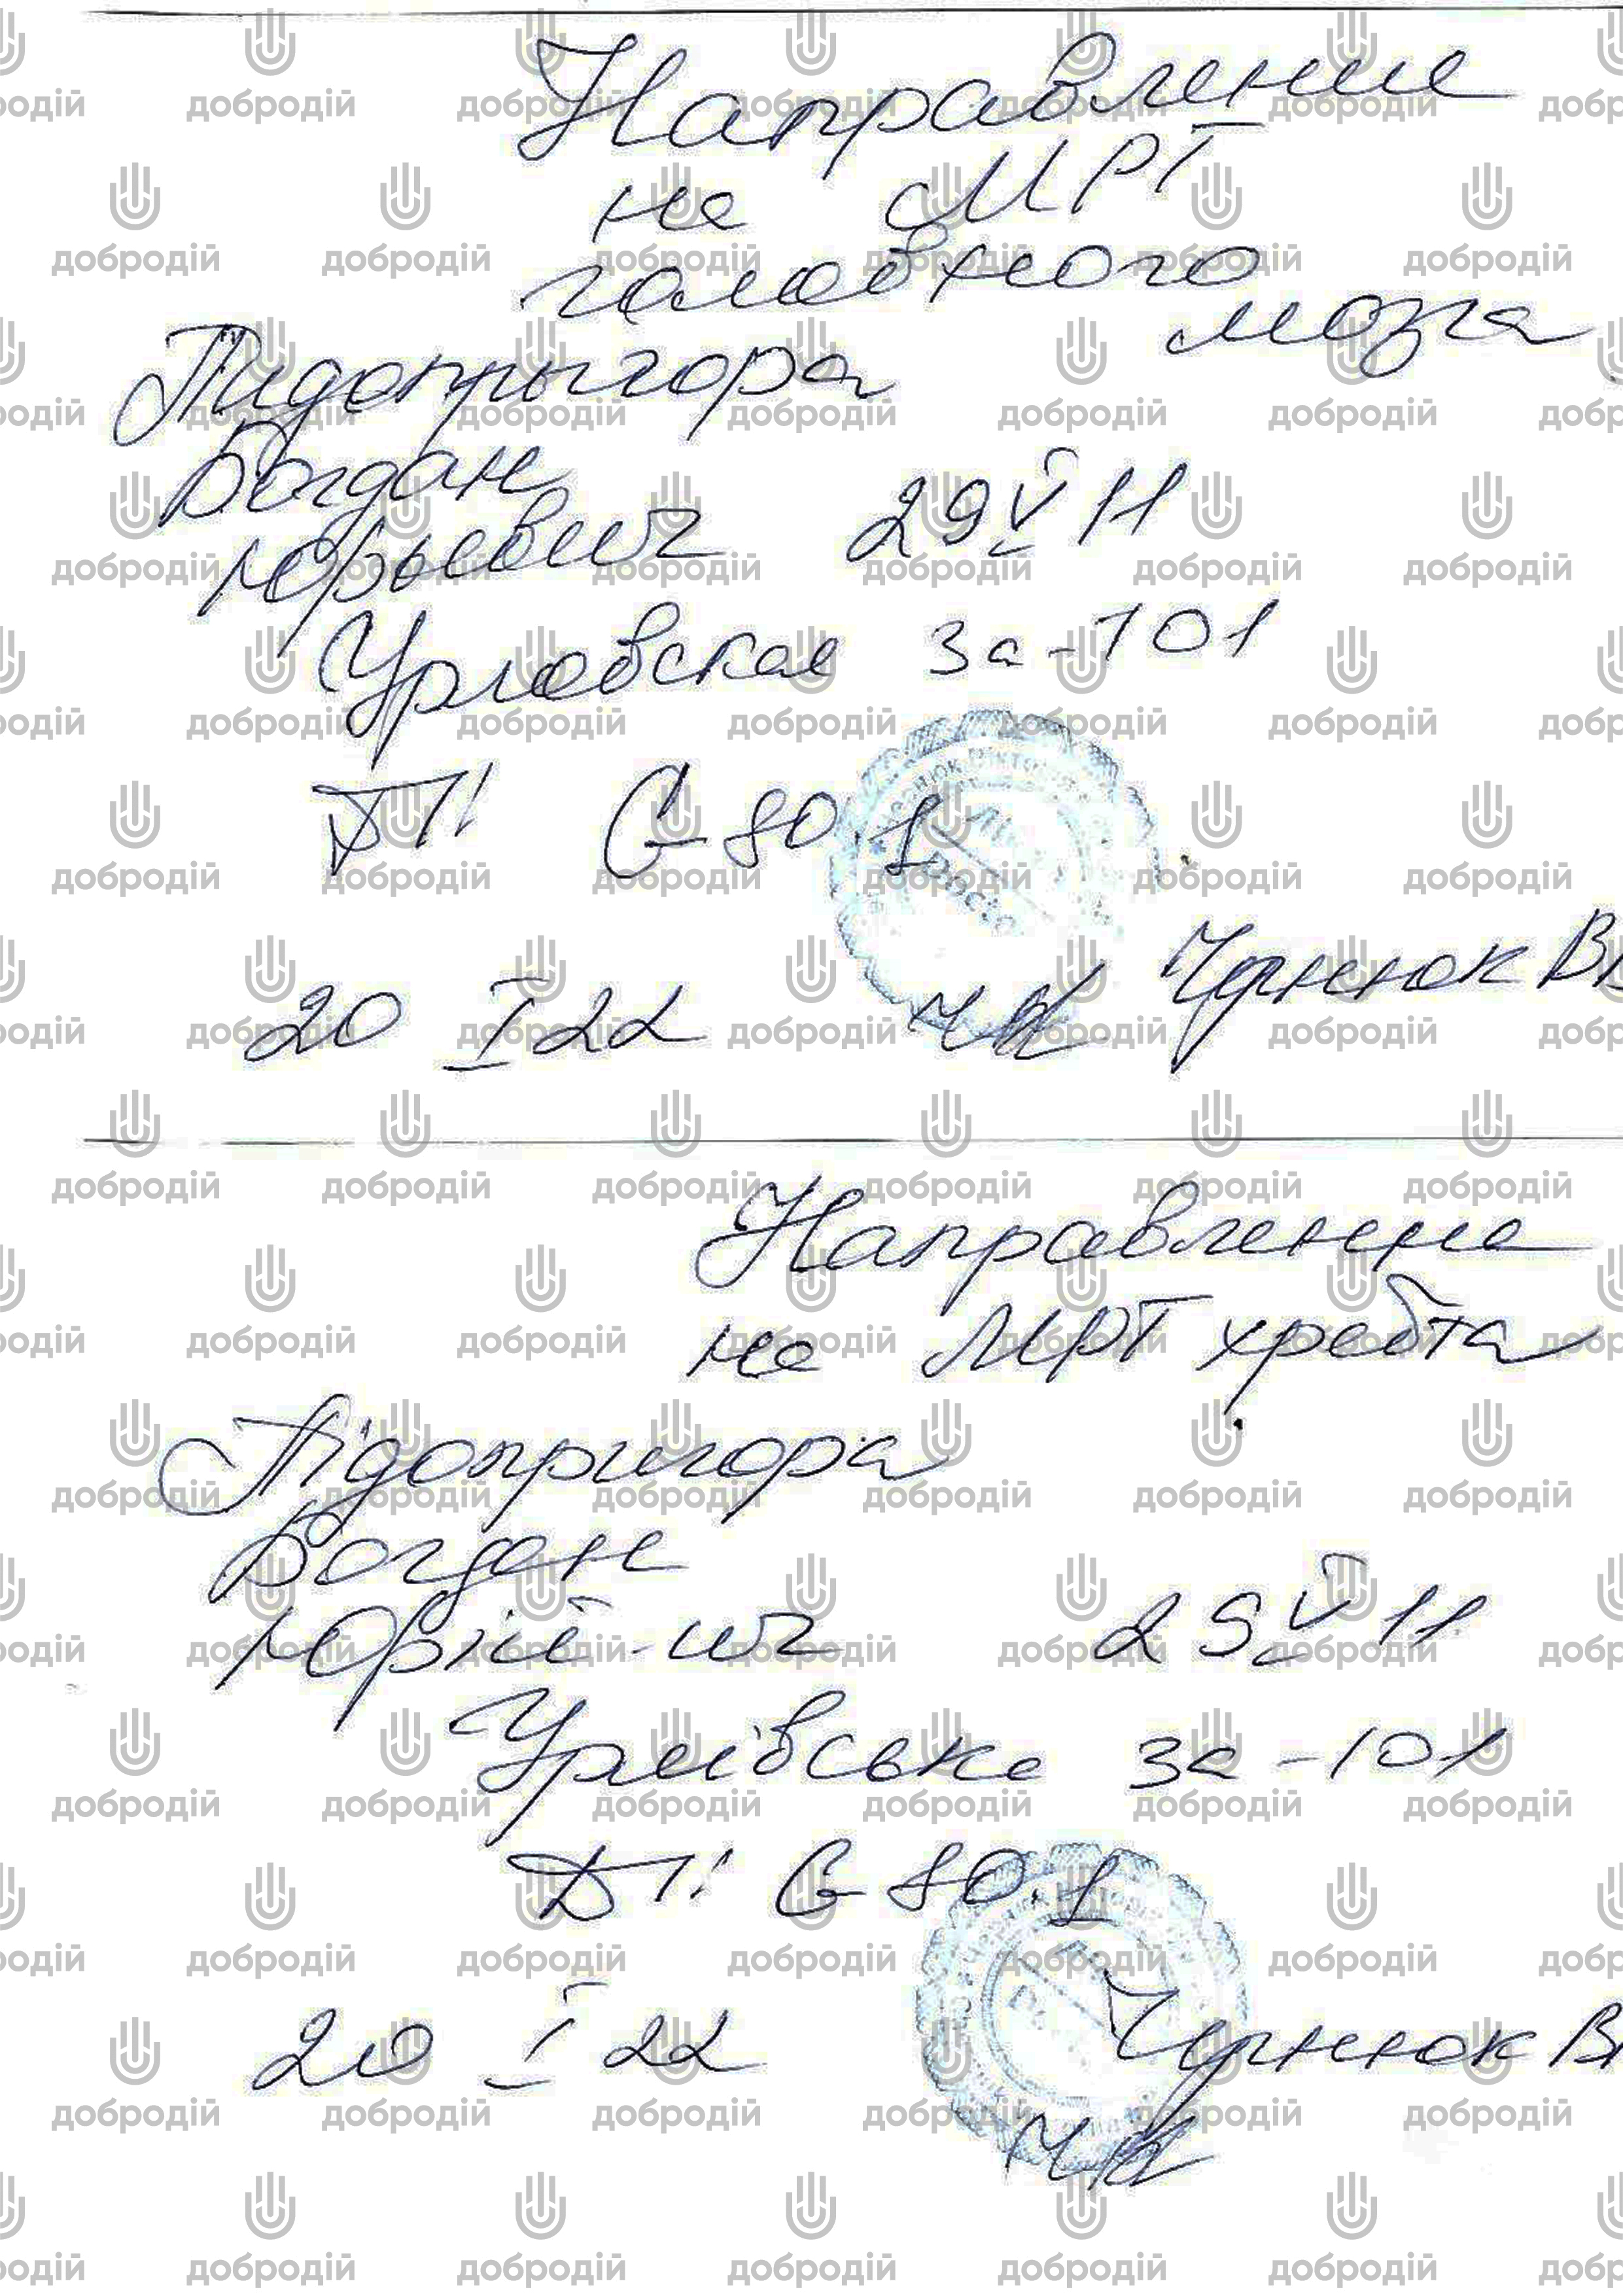 Направление
на МРТ
головного
мозга
Пидопрыгора
Богдан
Юрьевич 29 V 11
Урловская 3а-101
ДП: G 80.1
20 I 22 Чернюк В
Направлення
на МРТ хребта
Підопригора
Богдан
Юрійович 29 V 11
Урлівська 3а-101
ДП: G 80.1
20 I 22 Чернюк В
добродій